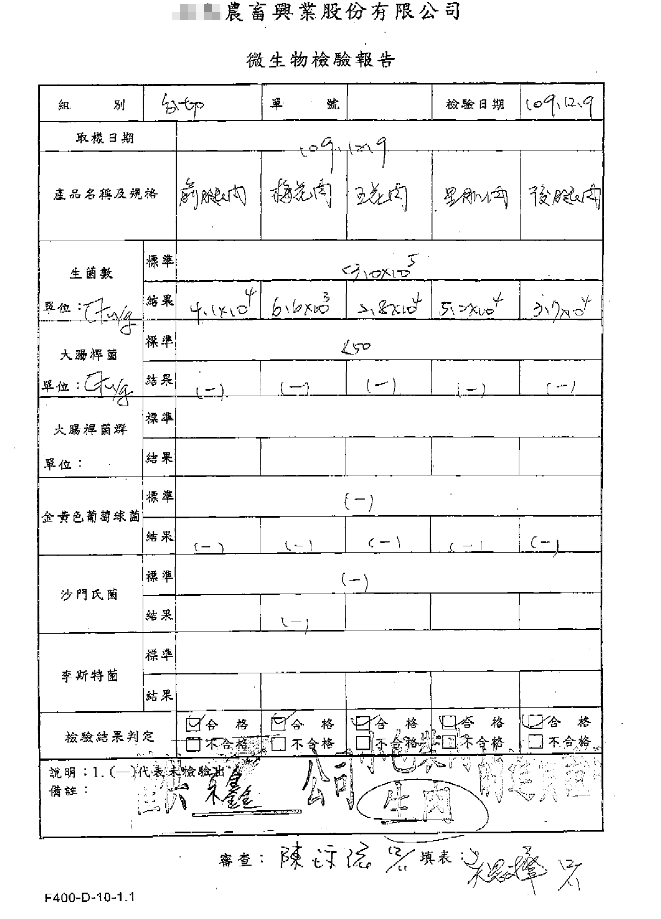 農畜興業股份有限公司
微生物檢驗報告
組 別 分切 單 號 檢驗日期 109.12.9
取樣日期 109.12.9
產品名稱及規格 前腿肉 梅花肉 五花肉 里肌肉 後腿肉
生菌數 標準 <3.0×10⁵
單位：Cfu/g 結果 4.1×10⁴ 6.6×10³ 2.8×10⁴ 5.2×10⁴ 3.7×10⁴
大腸桿菌 標準 <50
單位：Cfu/g 結果 (-) (-) (-) (-) (-)
大腸桿菌群 標準
單位： 結果
金黃色葡萄球菌 標準 (-)
結果 (-) (-) (-) (-) (-)
沙門氏菌 標準 (-)
結果 (-)
李斯特菌 標準
結果
檢驗結果判定 ☑合 格 ☑合 格 ☑合 格 ☑合 格 ☑合 格
□不合格 □不合格 □不合格 □不合格 □不合格
說明：1.(—)代表未檢驗出
備註： 公司
生肉
審查：陳 填表：
F400-D-10-1.1